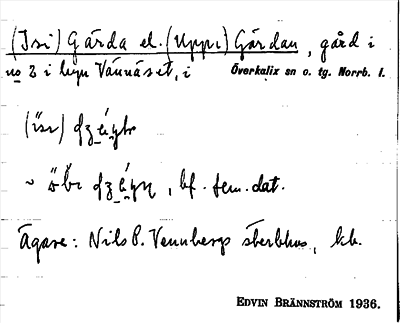 (Isi) Gärda el. (Uppi) Gärdan, gård i
no 2 i byn Vännäset, i Överkalix sn o. tg. Norrb. l.
, bf. fem. dat.
Ägare: Nils P. Vennbergs sterbhus, kb.
EDVIN BRÄNNSTRÖM 1936.